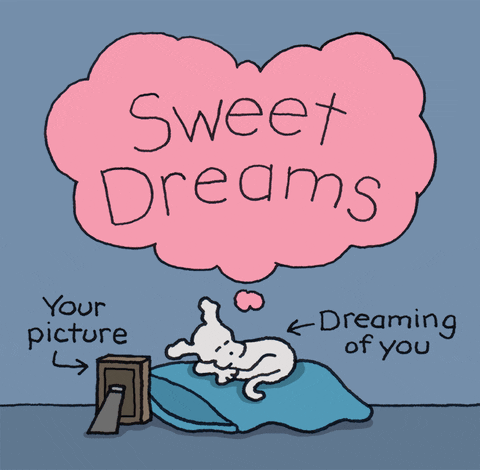 Sweet
Dreams
Your
picture
Dreaming
of you